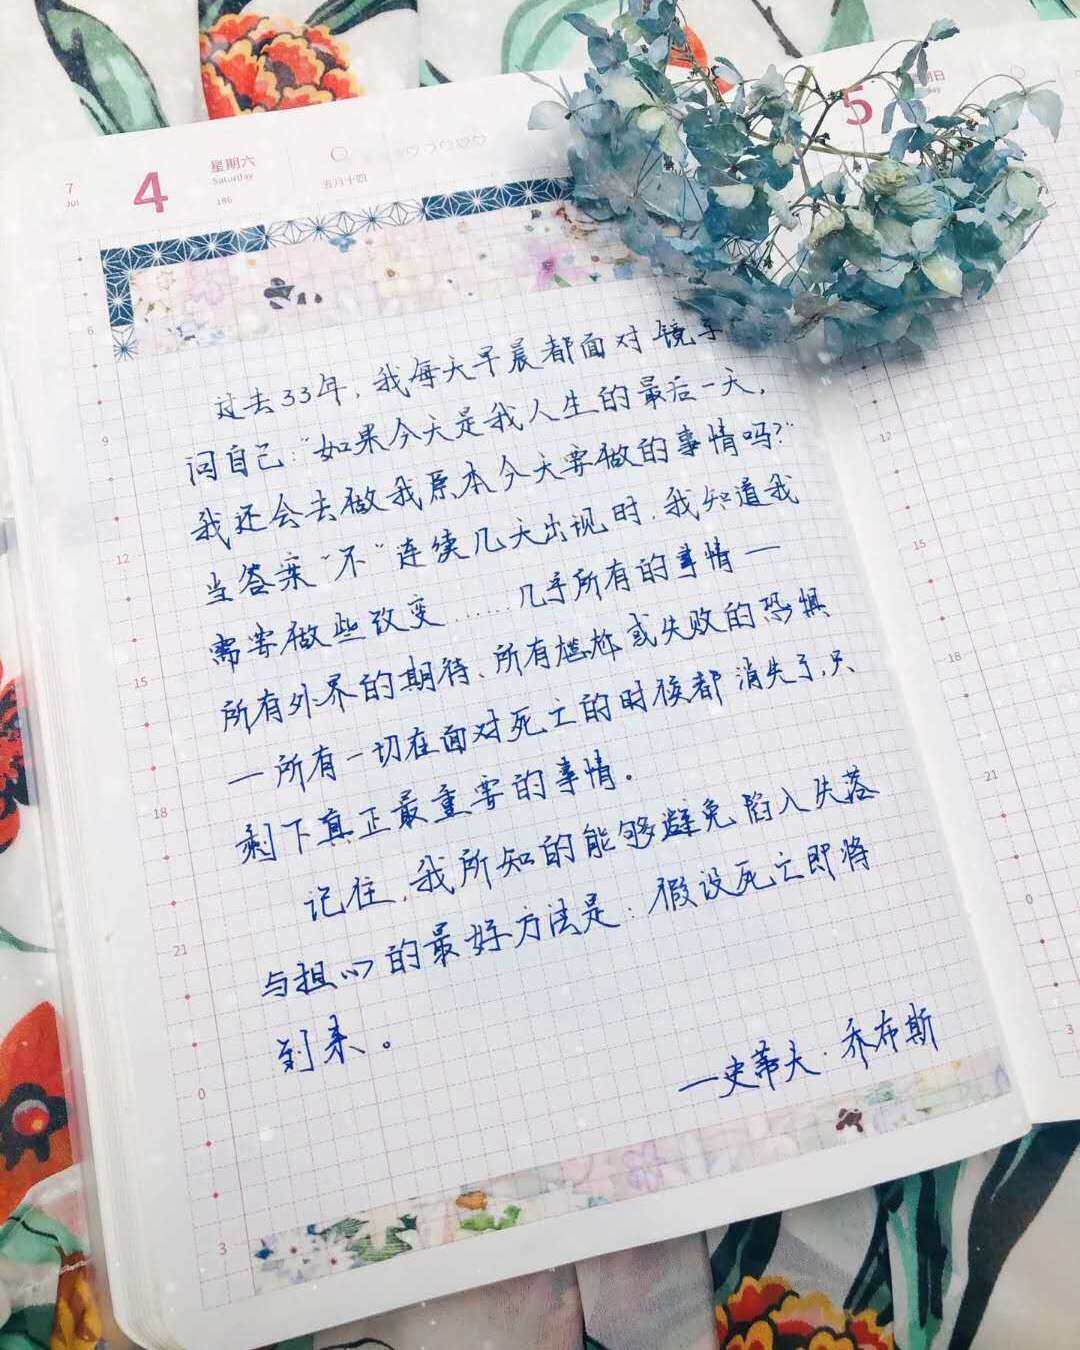 7
Jul
4
星期六
Saturday
186
五月十四
5
期日
6
9
12
15
18
21
0
3
过去33年，我每天早晨都面对镜子
问自己："如果今天是我人生的最后一天，
我还会去做我原本今天要做的事情吗？"
当答案"不"连续几天出现时，我知道我
需要做些改变……几乎所有的事情—
所有外界的期待、所有尴尬或失败的恐惧
—所有一切在面对死亡的时候都消失了，只
剩下真正最重要的事情。
记住，我所知的能够避免陷入失落
与担心的最好方法是：假设死亡即将
到来。
—史蒂夫·乔布斯
12
15
18
21
0
3